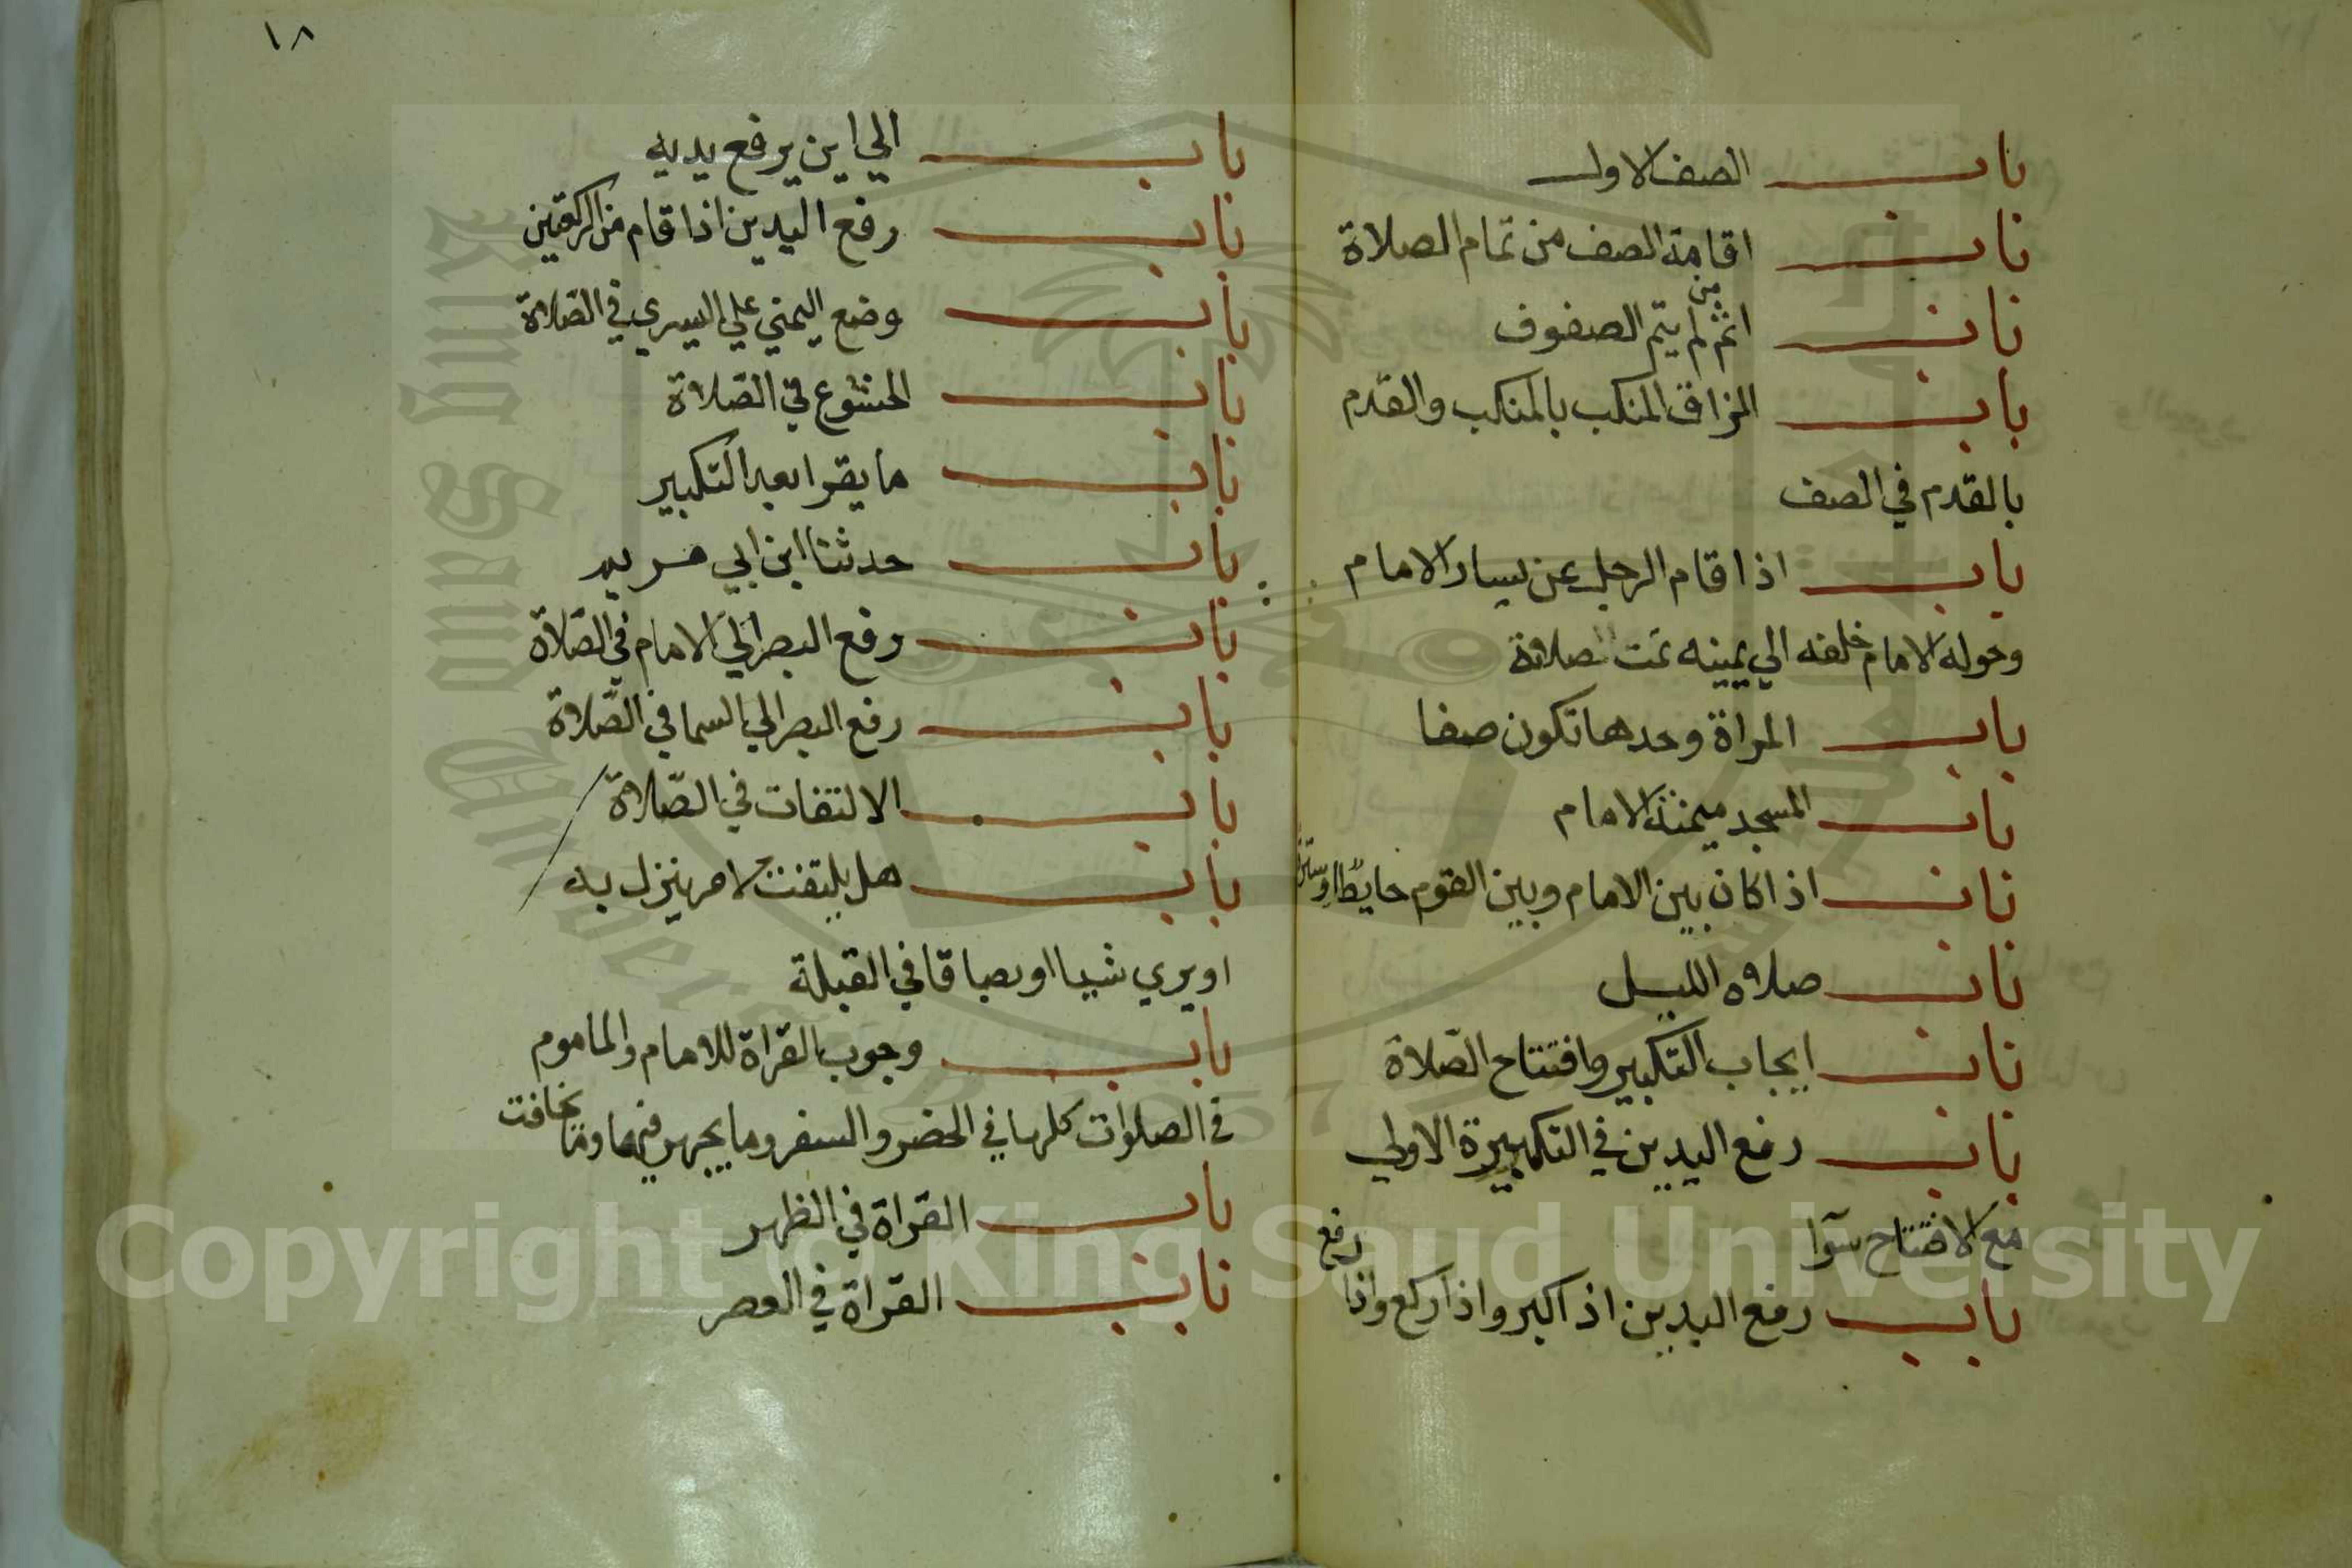 باب الصف الاول
باب اقامة الصف من تمام الصلاة
باب اثم من لم يتم الصفوف
باب الزاق المنكب بالمنكب والقدم
بالقدم في الصف
باب اذا قام الرجل عن يسار الامام
وحوله الامام خلفه الي يمينه تمت صلاته
باب المراة وحدها تكون صفا
باب المسجد ميمنة الامام
باب اذا كان بين الامام وبين القوم حايطا او سترة
باب صلاه الليل
باب ايجاب التكبير وافتتاح الصلاة
باب رفع اليدين في التكبيرة الاولي
مع الافتتاح سوآ
باب رفع اليدين اذا كبر واذا ركع واذا رفع
١٨
باب الي اين يرفع يديه
باب رفع اليدين اذا قام من الركعتين
باب وضع اليمني علي اليسري في الصلاة
باب الخشوع في الصلاة
باب ما يقرا بعد التكبير
باب حدثنا ابن ابي مريم
باب رفع البصر الي الامام في الصلاة
باب رفع البصر الي السما في الصلاة
باب الالتفات في الصلاة
باب هل يلتفت لامر ينزل به
او يري شيا او بصاقا في القبلة
باب وجوب القراة للامام والماموم
في الصلوات كلها في الحضر والسفر وما يجهر فيها وما يخافت
باب القراة في الظهر
باب القراة في العصر
Copyright © King Saud University
King Saud University
1957